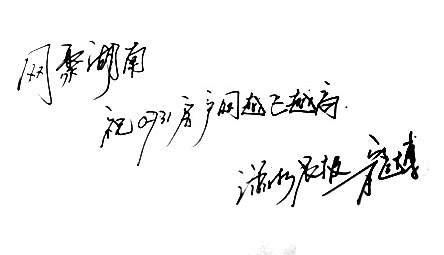 网聚湖南
祝0731房产网越飞越高.
潇湘晨报